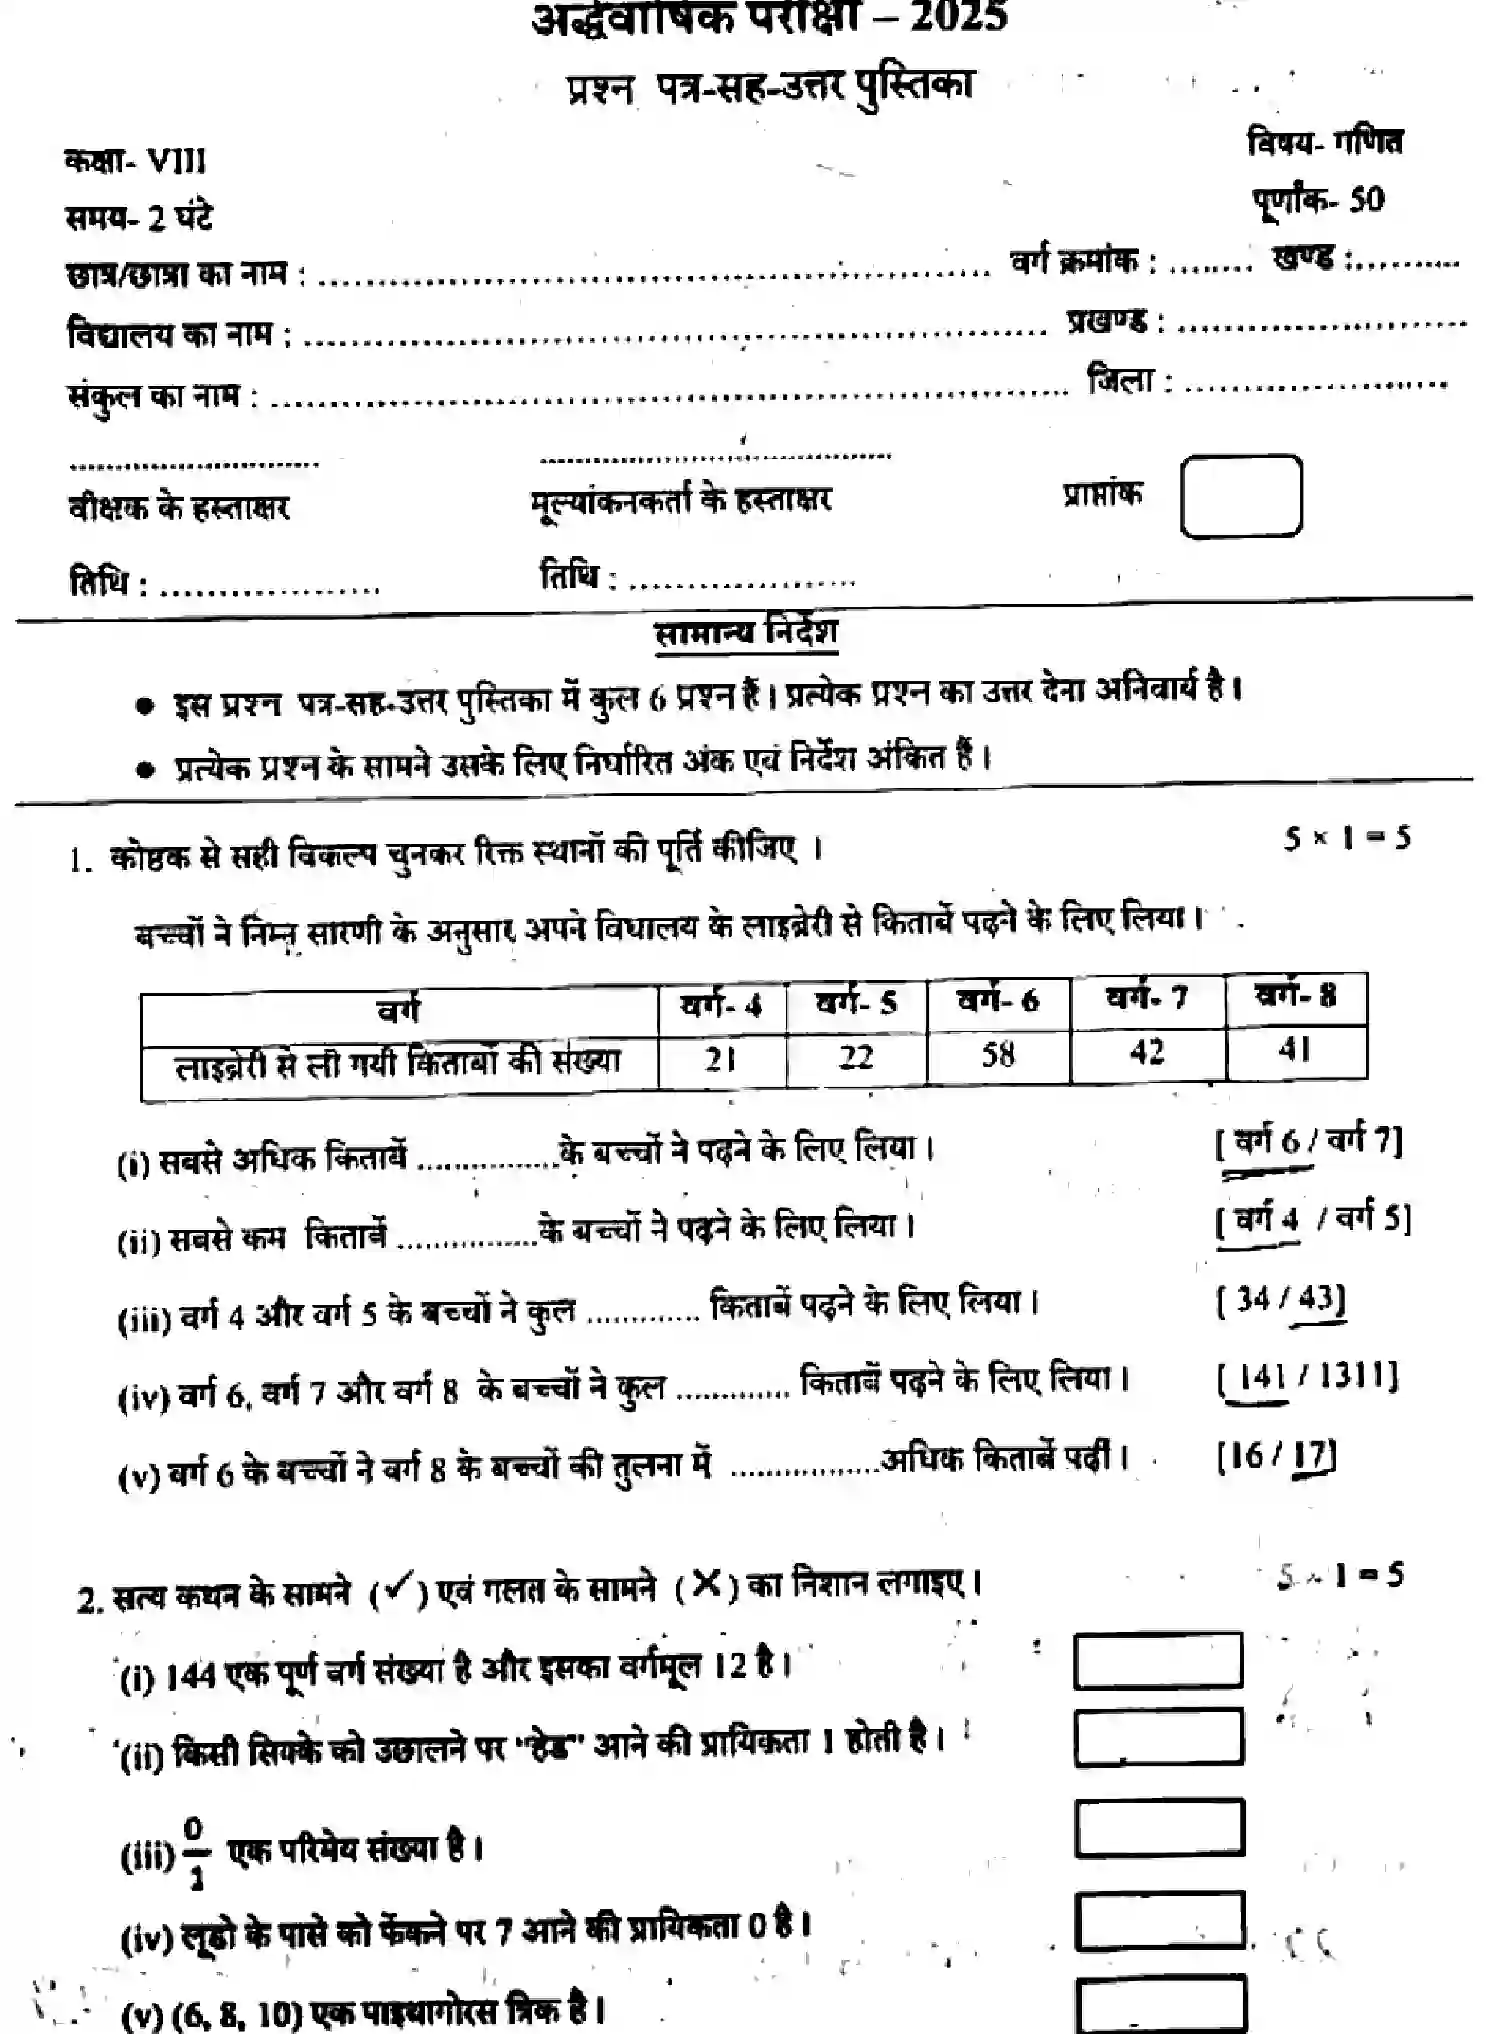 अर्द्धवार्षिक परीक्षा – 2025
प्रश्न पत्र-सह-उत्तर पुस्तिका
कक्षा- VIII
विषय- गणित
समय- 2 घंटे
पूर्णांक- 50
छात्र/छात्रा का नाम : .................................................. वर्ग क्रमांक : ........ खण्ड :...........
विद्यालय का नाम : .................................................. प्रखण्ड : ..........................
संकुल का नाम : .................................................. जिला : ........................
वीक्षक के हस्ताक्षर मूल्यांकनकर्ता के हस्ताक्षर प्राप्तांक
तिथि : .................... तिथि : .....................
सामान्य निर्देश
• इस प्रश्न पत्र-सह-उत्तर पुस्तिका में कुल 6 प्रश्न हैं। प्रत्येक प्रश्न का उत्तर देना अनिवार्य है।
• प्रत्येक प्रश्न के सामने उसके लिए निर्धारित अंक एवं निर्देश अंकित हैं।
1. कोष्ठक से सही विकल्प चुनकर रिक्त स्थानों की पूर्ति कीजिए । 5 × 1 = 5
बच्चों ने निम्न सारणी के अनुसार अपने विधालय के लाइब्रेरी से किताबें पढ़ने के लिए लिया।
वर्ग वर्ग- 4 वर्ग- 5 वर्ग- 6 वर्ग- 7 वर्ग- 8
लाइब्रेरी से ली गयी किताबों की संख्या 21 22 58 42 41
(i) सबसे अधिक किताबें ................के बच्चों ने पढ़ने के लिए लिया। [ वर्ग 6 / वर्ग 7]
(ii) सबसे कम किताबें ................के बच्चों ने पढ़ने के लिए लिया। [ वर्ग 4 / वर्ग 5]
(iii) वर्ग 4 और वर्ग 5 के बच्चों ने कुल ............. किताबें पढ़ने के लिए लिया। [ 34 / 43]
(iv) वर्ग 6, वर्ग 7 और वर्ग 8 के बच्चों ने कुल ............. किताबें पढ़ने के लिए लिया। [ 141 / 1311]
(v) वर्ग 6 के बच्चों ने वर्ग 8 के बच्चों की तुलना में .................अधिक किताबें पढीं। [16 / 17]
2. सत्य कथन के सामने (✓) एवं गलत के सामने (✗) का निशान लगाइए। 5 × 1 = 5
(i) 144 एक पूर्ण वर्ग संख्या है और इसका वर्गमूल 12 है।
(ii) किसी सिक्के को उछालने पर "हेड" आने की प्रायिकता 1 होती है।
(iii) 0/1 एक परिमेय संख्या है।
(iv) लूडो के पासे को फेंकने पर 7 आने की प्रायिकता 0 है।
(v) (6, 8, 10) एक पाइथागोरस त्रिक है।